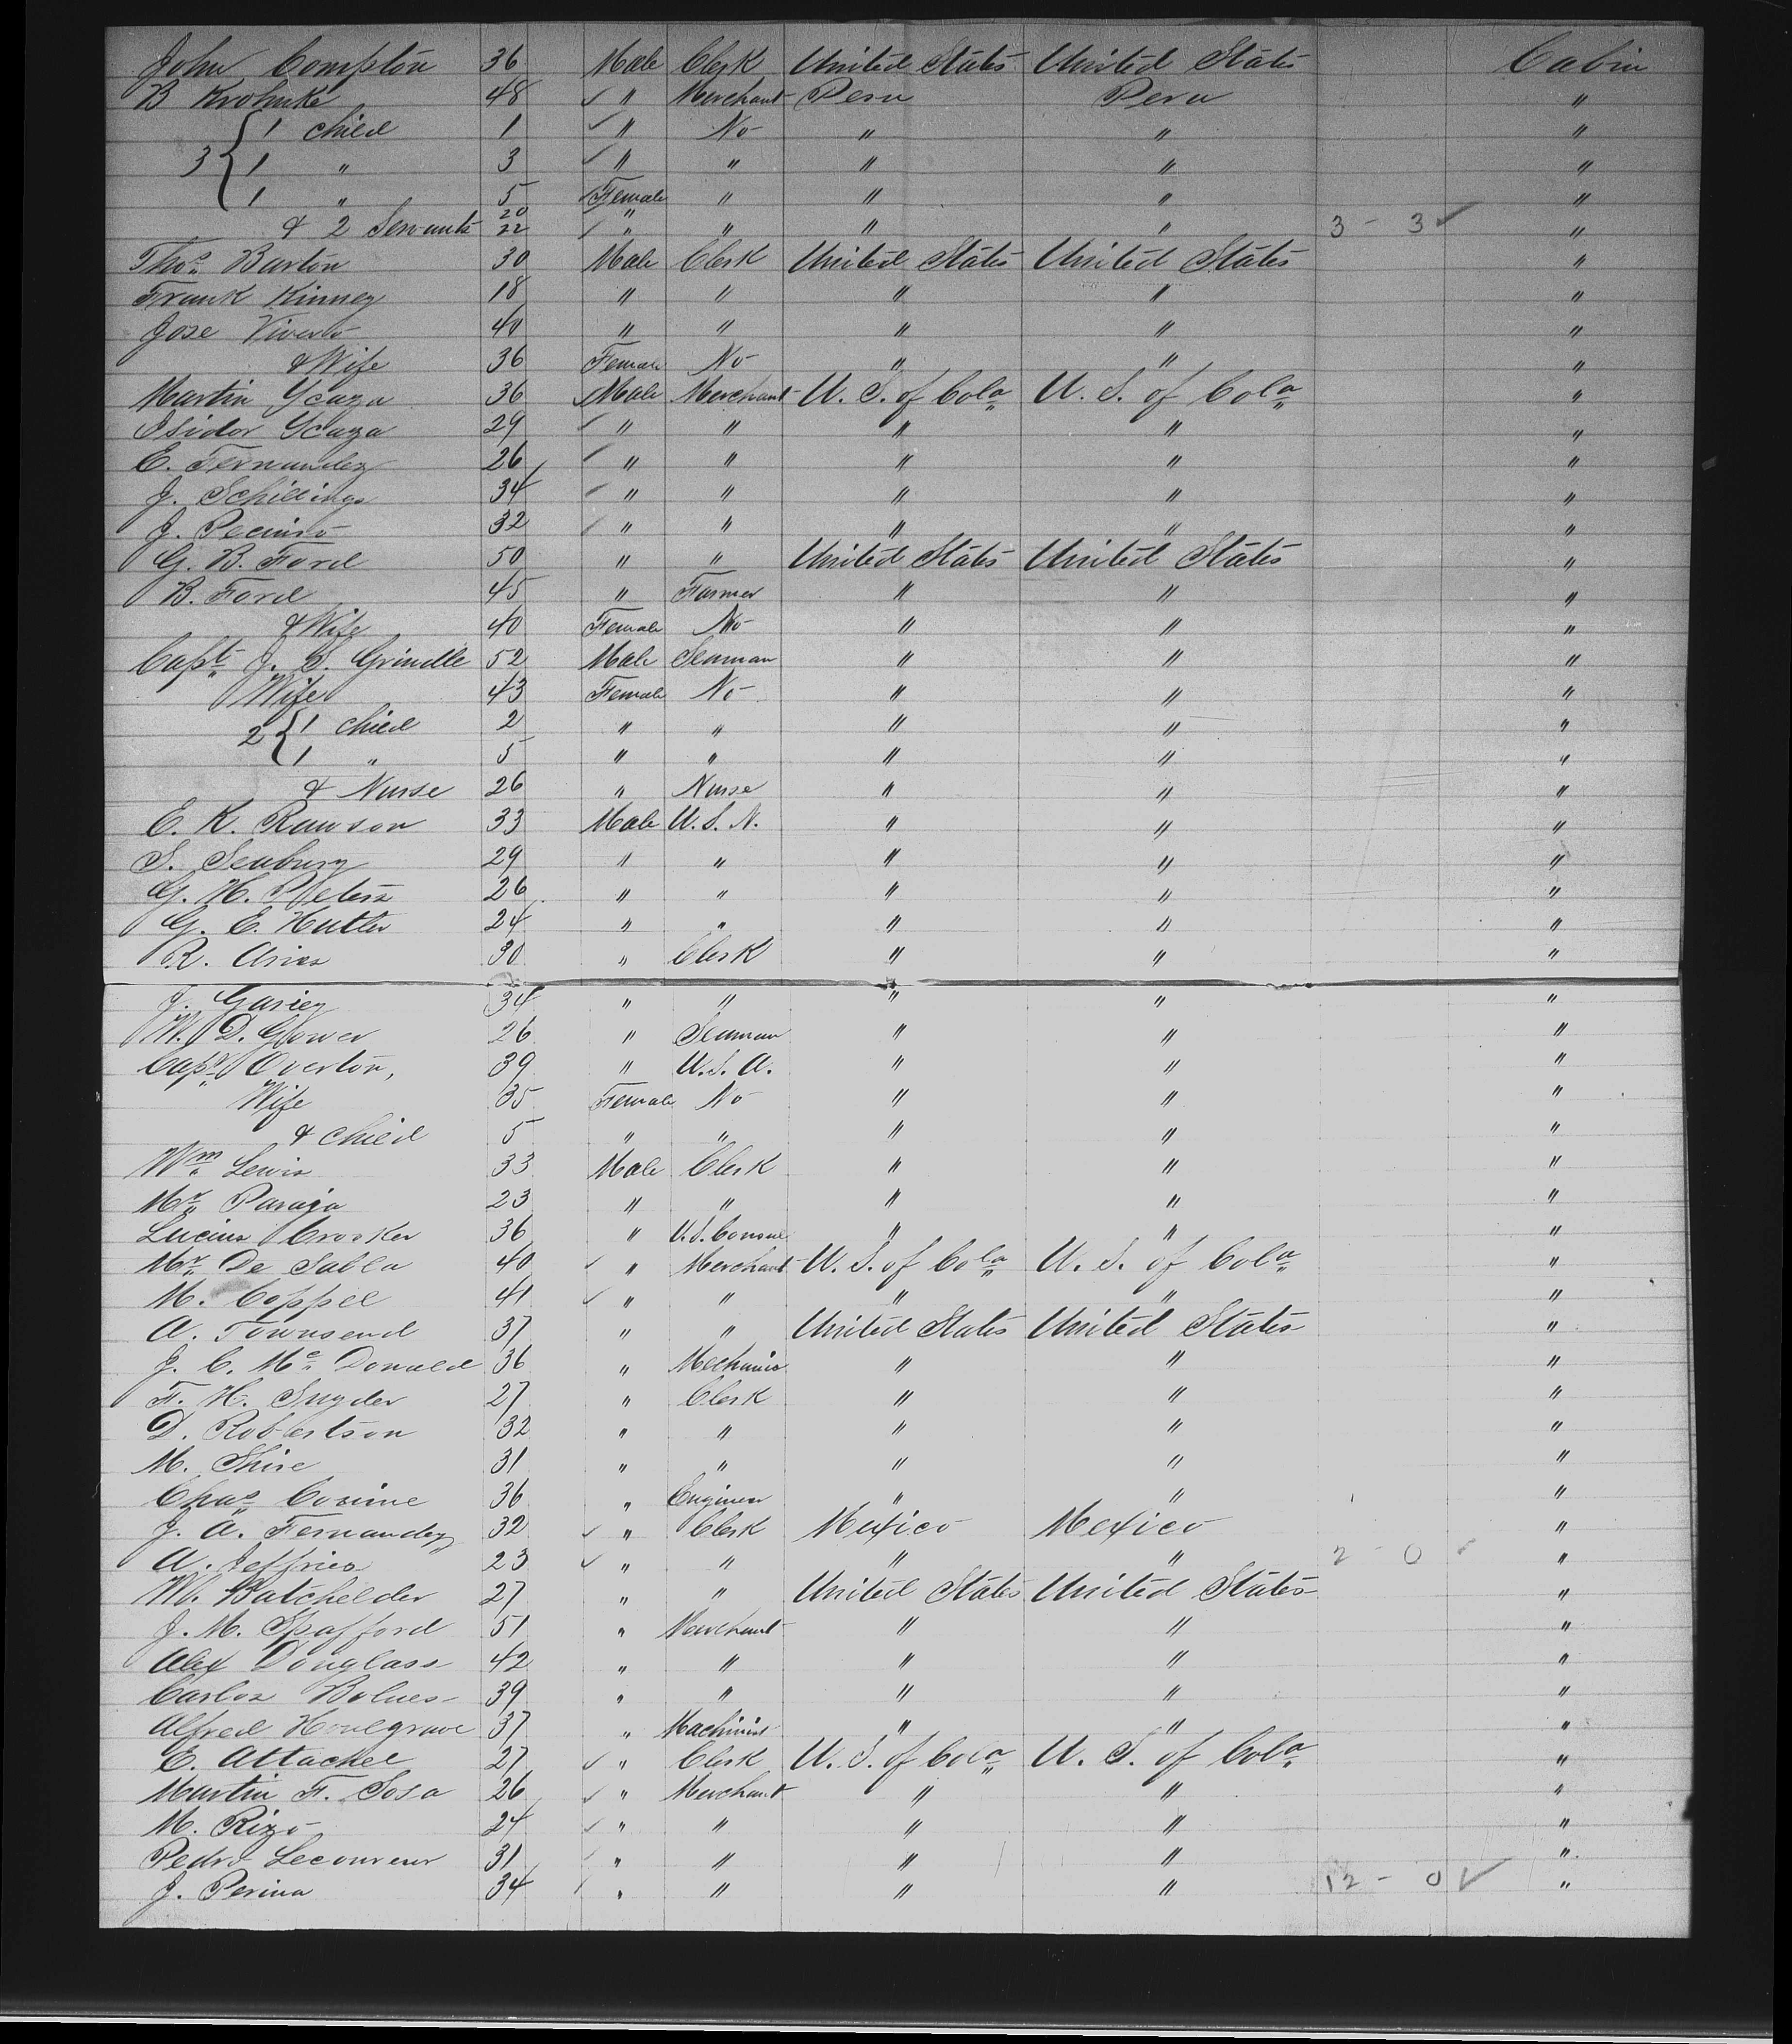 John Compton 36 Male Clerk United States United States Cabin
B Krohnke 48 ✓ " Merchant Peru Peru "
1 child 1 ✓ " No " " "
3 { 1 " 3 ✓ " " " " "
1 " 5 Female " " " "
20 "
& 2 Servants 22 ✓ " " " " 3 - 3 ✓ "
Thos. Barton 30 Male Clerk United States United States "
Frank Kinney 18 " " " " "
Jose 40 " " " " "
& Wife 36 Female No " " "
Martin Ycaza 36 Male Merchant U. S. of Cola U. S. of Cola "
Isidor Ycaza 29 ✓ " " " " "
E. Fernandez 26 ✓ " " " " "
J. Schillings 34 ✓ " " " " "
J. 32 ✓ " " " " "
G. B. Ford 50 " " United States United States "
B. Ford 45 " Farmer " " "
& Wife 40 Female No " " "
Capt. J. S. Grindle 52 Male Seaman " " "
Wife 43 Female No " " "
2 { 1 child 2 " " " " "
1 " 5 " " " " "
& Nurse 26 " Nurse " " "
E. K. Rawson 33 Male U. S. N. " " "
S. Seabury 29 " " " " "
G. H. Peters 26 " " " " "
G. E. Hutter 24 " " " " "
R. Arias 30 " Clerk " " "
J. 34 " " " " "
M. D. Glower 26 " Seaman " " "
Capt. Overton, 39 " U. S. A. " " "
Wife 35 Female No " " "
& child 5 " " " " "
Wm. Lewis 33 Male Clerk " " "
Mr. 23 " " " " "
Lucius Crooker 36 " U. S. Consul " " "
Mr. De Sabla 40 ✓ " Merchant U. S. of Cola U. S. of Cola "
M. Coppel 41 ✓ " " " " "
A. Townsend 37 " " United States United States "
J. C. Mc. Donald 36 " Mechanic " " "
F. H. Snyder 27 " Clerk " " "
D. Robertson 32 " " " " "
M. Shire 31 " " " " "
Chas. Corine 36 " Engineer " " "
J. A. Fernandez 32 ✓ " Clerk Mexico Mexico "
A. Jeffries 23 ✓ " " " " 2 - 0 ✓ "
W. Batchelder 27 " " United States United States "
J. M. Spafford 51 " Merchant " " "
Alex Douglass 42 " " " " "
Carlos 39 " " " " "
Alfred Houlgrave 37 " Machinist " " "
E. Attachel 27 ✓ " Clerk U. S. of Cola U. S. of Cola "
Martin F. Sosa 26 ✓ " Merchant " " "
M. Rizo 24 ✓ " " " " "
Pedro Lecouveur 31 ✓ " " " " "
J. Perina 34 ✓ " " " " 12 - 0 ✓ "